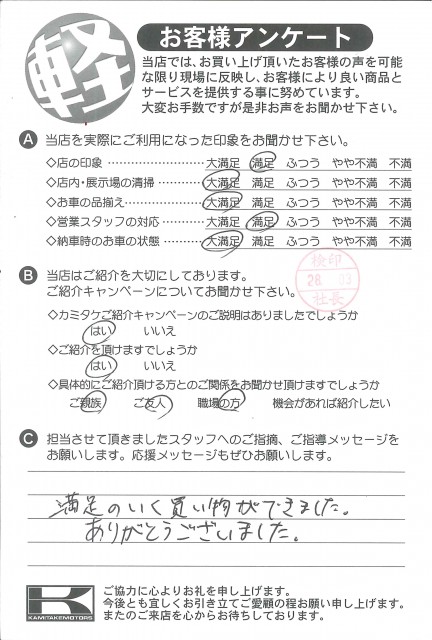 軽
お客様アンケート
当店では、お買い上げ頂いたお客様の声を可能
な限り現場に反映し、お客様により良い商品と
サービスを提供する事に努めています。
大変お手数ですが是非お声をお聞かせ下さい。
A 当店を実際にご利用になった印象をお聞かせ下さい。
◇店の印象 …………………… 大満足 満足 ふつう やや不満 不満
◇店内・展示場の清掃 ………… 大満足 満足 ふつう やや不満 不満
◇お車の品揃え ……………… 大満足 満足 ふつう やや不満 不満
◇営業スタッフの対応 ………… 大満足 満足 ふつう やや不満 不満
◇納車時のお車の状態 ………… 大満足 満足 ふつう やや不満 不満
B 当店はご紹介を大切にしております。
ご紹介キャンペーンについてお聞かせ下さい。
検印
28. 03
社長
◇カミタケご紹介キャンペーンのご説明はありましたでしょうか
はい いいえ
◇ご紹介を頂けますでしょうか
はい いいえ
◇具体的にご紹介頂ける方とのご関係をお聞かせ頂けますでしょうか
ご親族 ご友人 職場の方 機会があれば紹介したい
C 担当させて頂きましたスタッフへのご指摘、ご指導メッセージを
お願いします。応援メッセージもぜひお願いします。
満足のいく買い物ができました。
ありがとうございました。
K
KAMITAKEMOTORS
ご協力に心よりお礼を申し上げます。
今後とも宜しくお引き立てご愛顧の程お願い申し上げます。
またのご来店を心からお待ちしております。